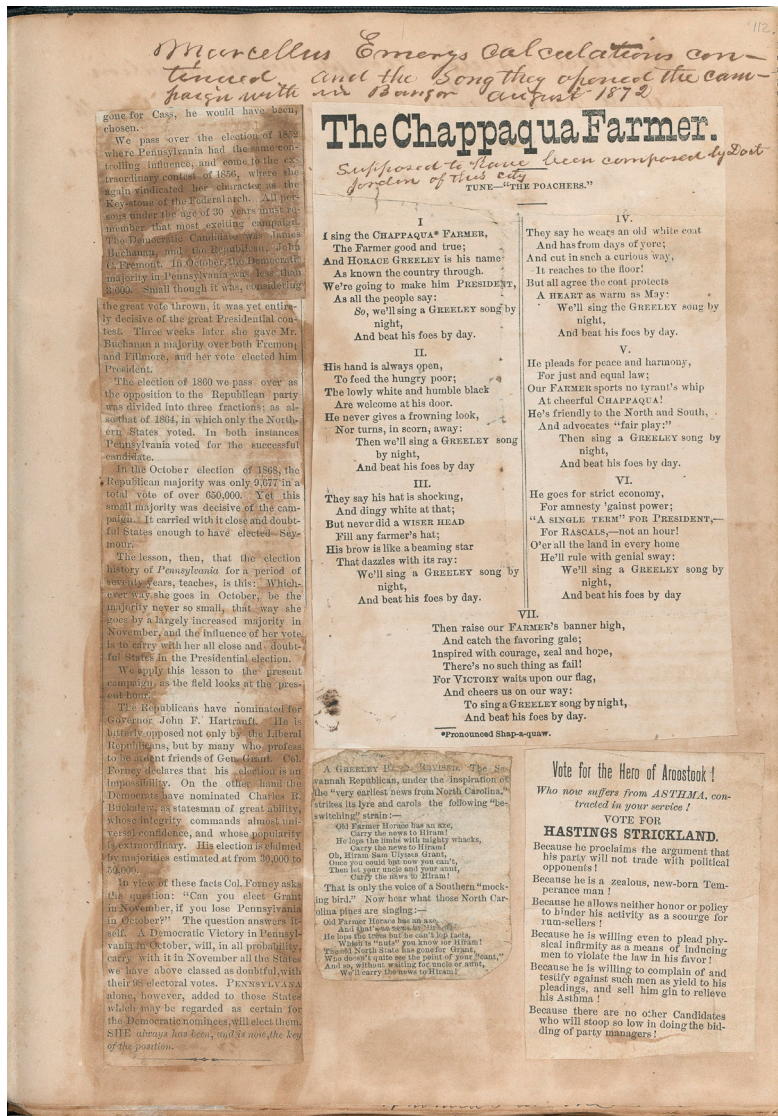 112
Marcellus Emerys calculations con-
tinued and the Song they opened the cam-
paign with in Bangor august 1872
gone for Cass, he would have been,
chosen.
We pass over the election of 1852
where Pennsylvania had the same con-
trolling influence, and come to the ex-
traordinary contest of 1856, where she
again vindicated her character as the
Key-stone of the Federal arch. All per-
sons under the age of 30 years must re-
member that most exciting campaign.
The Democratic Candidate was James
Buchanan, and the Republican, John
C. Fremont. In October, the Democratic
majority in Pennsylvania was less than
3,000. Small though it was, considering
the great vote thrown, it was yet entire-
ly decisive of the great Presidential con-
test. Three weeks later she gave Mr.
Buchanan a majority over both Fremont
and Fillmore, and her vote elected him
President.
The election of 1860 we pass over as
the opposition to the Republican party
was divided into three fractions; as al-
so that of 1864, in which only the North-
ern States voted. In both instances
Pennsylvania voted for the successful
candidate.
In the October election of 1868, the
Republican majority was only 9,677 in a
total vote of over 650,000. Yet this
small majority was decisive of the cam-
paign. It carried with it close and doubt-
ful States enough to have elected Sey-
mour.
The lesson, then, that the election
history of Pennsylvania for a period of
seventy years, teaches, is this: Which-
ever way she goes in October, be the
majority never so small, that way she
goes by a largely increased majority in
November, and the influence of her vote
is to carry with her all close and doubt-
ful States in the Presidential election.
We apply this lesson to the present
campaign, as the field looks at the pres-
ent hour.
The Republicans have nominated for
Governor John F. Hartranft. He is
bitterly opposed not only by the Liberal
Republicans, but by many who profess
to be ardent friends of Gen. Grant. Col.
Forney declares that his election is an
impossibility. On the other hand the
Democrats have nominated Charles R.
Buckalew, as statesman of great ability,
whose integrity commands almost uni-
versal confidence, and whose popularity
is extraordinary. His election is claimed
by majorities estimated at from 30,000 to
50,000.
In view of these facts Col. Forney asks
the question: "Can you elect Grant
in November, if you lose Pennsylvania
in October?" The question answers it-
self. A Democratic Victory in Pennsyl-
vania in October, will, in all probability,
carry with it in November all the States
we have above classed as doubtful, with
their 98 electoral votes. PENNSYLVANA
alone, however, added to those States
which may be regarded as certain for
the Democratic nominees, will elect them.
SHE always has been, and is now, the key
of the position.
The Chappaqua Farmer.
Supposed to have been composed by Doct
Jordin of this city
TUNE—"THE POACHERS."
I
I sing the CHAPPAQUA* FARMER,
The Farmer good and true;
And HORACE GREELEY is his name
As known the country through.
We're going to make him PRESIDENT,
As all the people say:
So, we'll sing a GREELEY song by
night,
And beat his foes by day.
II.
His hand is always open,
To feed the hungry poor;
The lowly white and humble black
Are welcome at his door.
He never gives a frowning look,
Nor turns, in scorn, away:
Then we'll sing a GREELEY song
by night,
And beat his foes by day
III.
They say his hat is shocking,
And dingy white at that;
But never did a WISER HEAD
Fill any farmer's hat;
His brow is like a beaming star
That dazzles with its ray:
We'll sing a GREELEY song by
night,
And beat his foes by day.
IV.
They say he wears an old white coat
And has from days of yore;
And cut in such a curious way,
It reaches to the floor!
But all agree the coat protects
A HEART as warm as May:
We'll sing the GREELEY song by
night,
And beat his foes by day.
V.
He pleads for peace and harmony,
For just and equal law;
Our FARMER sports no tyrant's whip
At cheerful CHAPPAQUA!
He's friendly to the North and South,
And advocates "fair play:"
Then sing a GREELEY song by
night,
And beat his foes by day.
VI.
He goes for strict economy,
For amnesty 'gainst power;
"A SINGLE TERM" FOR PRESIDENT,—
For RASCALS,—not an hour!
O'er all the land in every home
He'll rule with genial sway:
We'll sing a GREELEY song by
night,
And beat his foes by day
VII.
Then raise our FARMER'S banner high,
And catch the favoring gale;
Inspired with courage, zeal and hope,
There's no such thing as fail!
For VICTORY waits upon our flag,
And cheers us on our way:
To sing a GREELEY song by night,
And beat his foes by day.
*Pronounced Shap-a-quaw.
A GREELEY REVISED. The Sa-
vannah Republican, under the inspiration of
the "very earliest news from North Carolina,"
strikes its lyre and carols the following "be-
witching" strain:—
Old Farmer Horace has an axe,
Carry the news to Hiram!
He lops the limbs with mighty whacks,
Carry the news to Hiram!
Oh, Hiram Sam Ulysses Grant,
Once you could but now you can't,
Then let your uncle and your aunt,
Carry the news to Hiram!
That is only the voice of a Southern "mock-
ing bird." Now hear what those North Car-
olina pines are singing:—
Old Farmer Horace has an axe,
And that's no news to Hiram!
He lops the trees but he can't lop facts,
Which is "nuts" you know for Hiram!
The old North State has gone for Grant,
Who doesn't quite see the point of your "cant,"
And so, without waiting for uncle or aunt,
We'll carry the news to Hiram!
Vote for the Hero of Aroostook!
Who now suffers from ASTHMA, con-
tracted in your service!
VOTE FOR
HASTINGS STRICKLAND.
Because he proclaims the argument that
his party will not trade with political
opponents!
Because he is a zealous, new-born Tem-
perance man!
Because he allows neither honor or policy
to hinder his activity as a scourge for
rum-sellers!
Because he is willing even to plead phy-
sical infirmity as a means of inducing
men to violate the law in his favor!
Because he is willing to complain of and
testify against such men as yield to his
pleadings, and sell him gin to relieve
his Asthma!
Because there are no other Candidates
who will stoop so low in doing the bid-
ding of party managers!